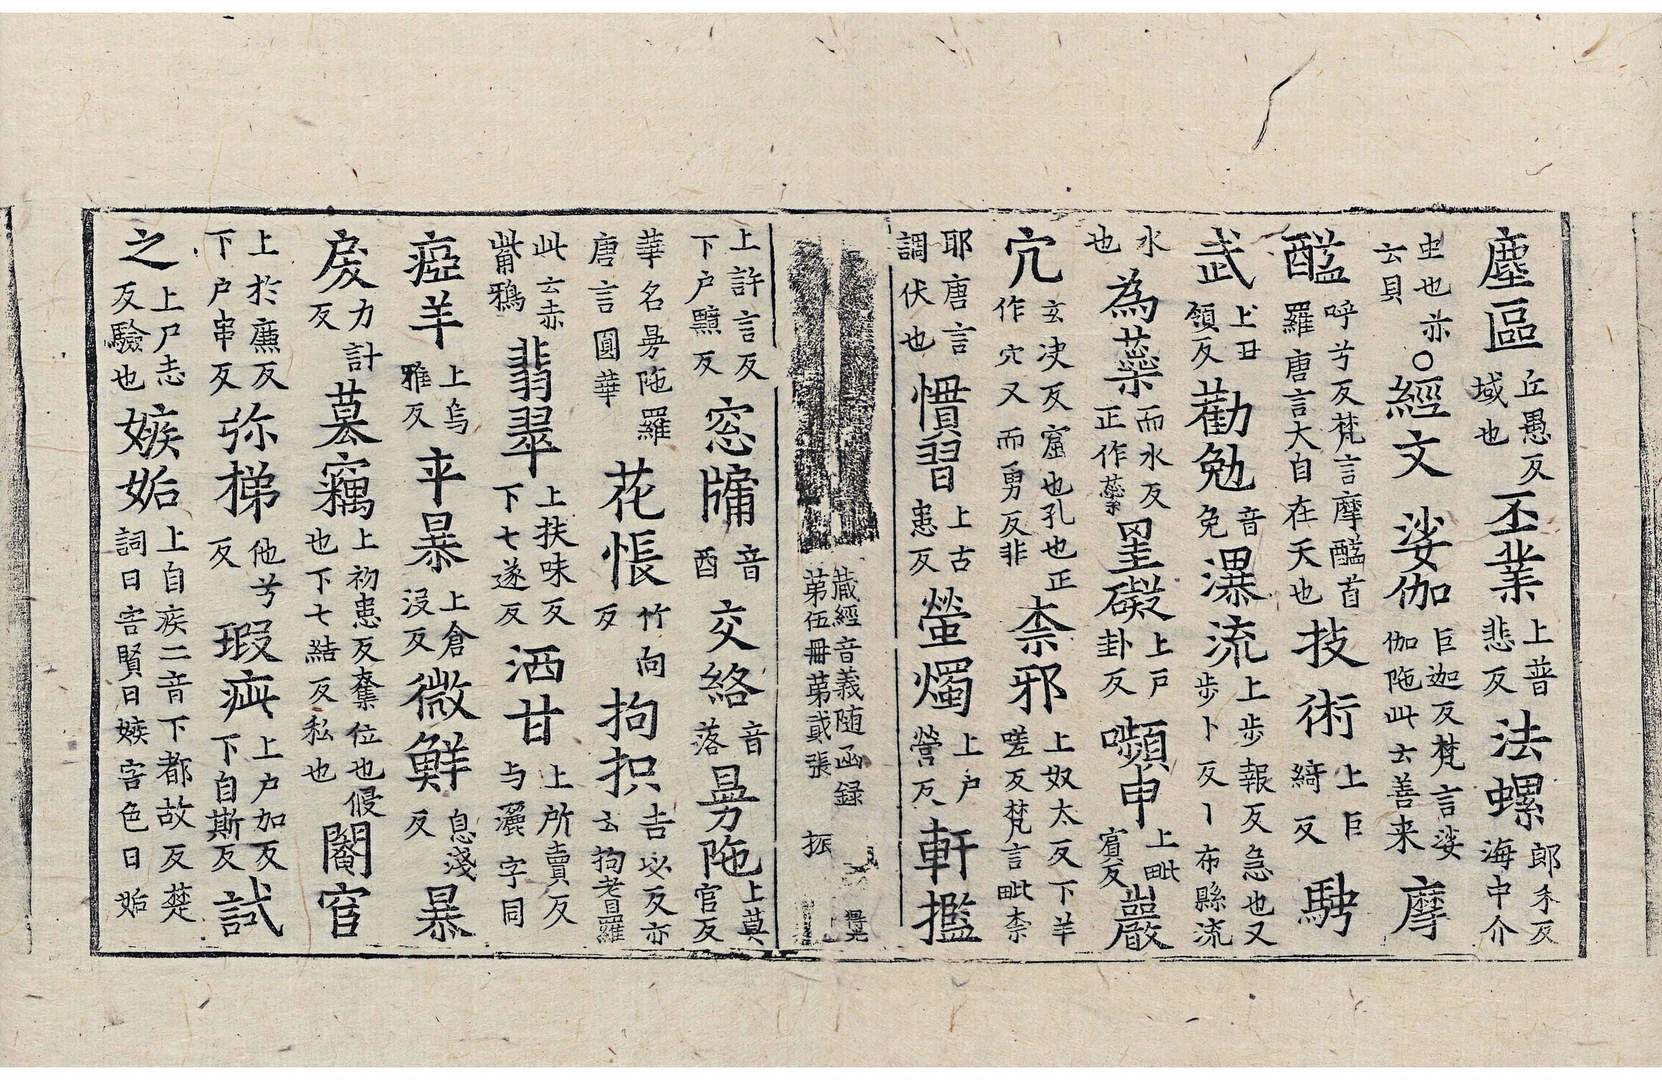 塵區丘愚反域也丕業上普悲反法螺郎禾反海中介
虫也亦云貝○經文娑伽巨迦反梵言娑伽陁此云善来摩
醯呼兮反梵言摩醯首羅唐言大自在天也技術上巨綺反騁
武上丑領反勸勉音免瀑流上步報反急也又步卜反丨布縣流
水也為蘂而水反正作蘂罣礙上戸卦反嚬申上毗賔反巖
宂玄决反窟也孔也正作穴又而勇反非柰邪上奴太反下羊嗟反梵言毗柰
耶唐言調伏也慣習上古患反螢燭上户營反軒檻
藏經音義随函録第伍冊苐貳張 振
上許言反下户黤反窓牖音酉交絡音落曼陁上莫官反
華名曼陁羅唐言圓華花帳竹向反拘枳吉必反亦云拘耆羅
此云赤觜鵶翡翠上扶味反下七遂反洒甘上所賣反与灑字同
瘂羊上烏雅反卒暴上倉没反微鮮息淺反暴
戾力計反墓竊上初患反奪位也下七結反私也侵閹官
上於廉反下户串反弥梯他兮反瑕疵上户加反下自斯反試
之上尸志反驗也嫉妬上自疾二音下都故反楚詞曰害賢曰嫉害色曰妬